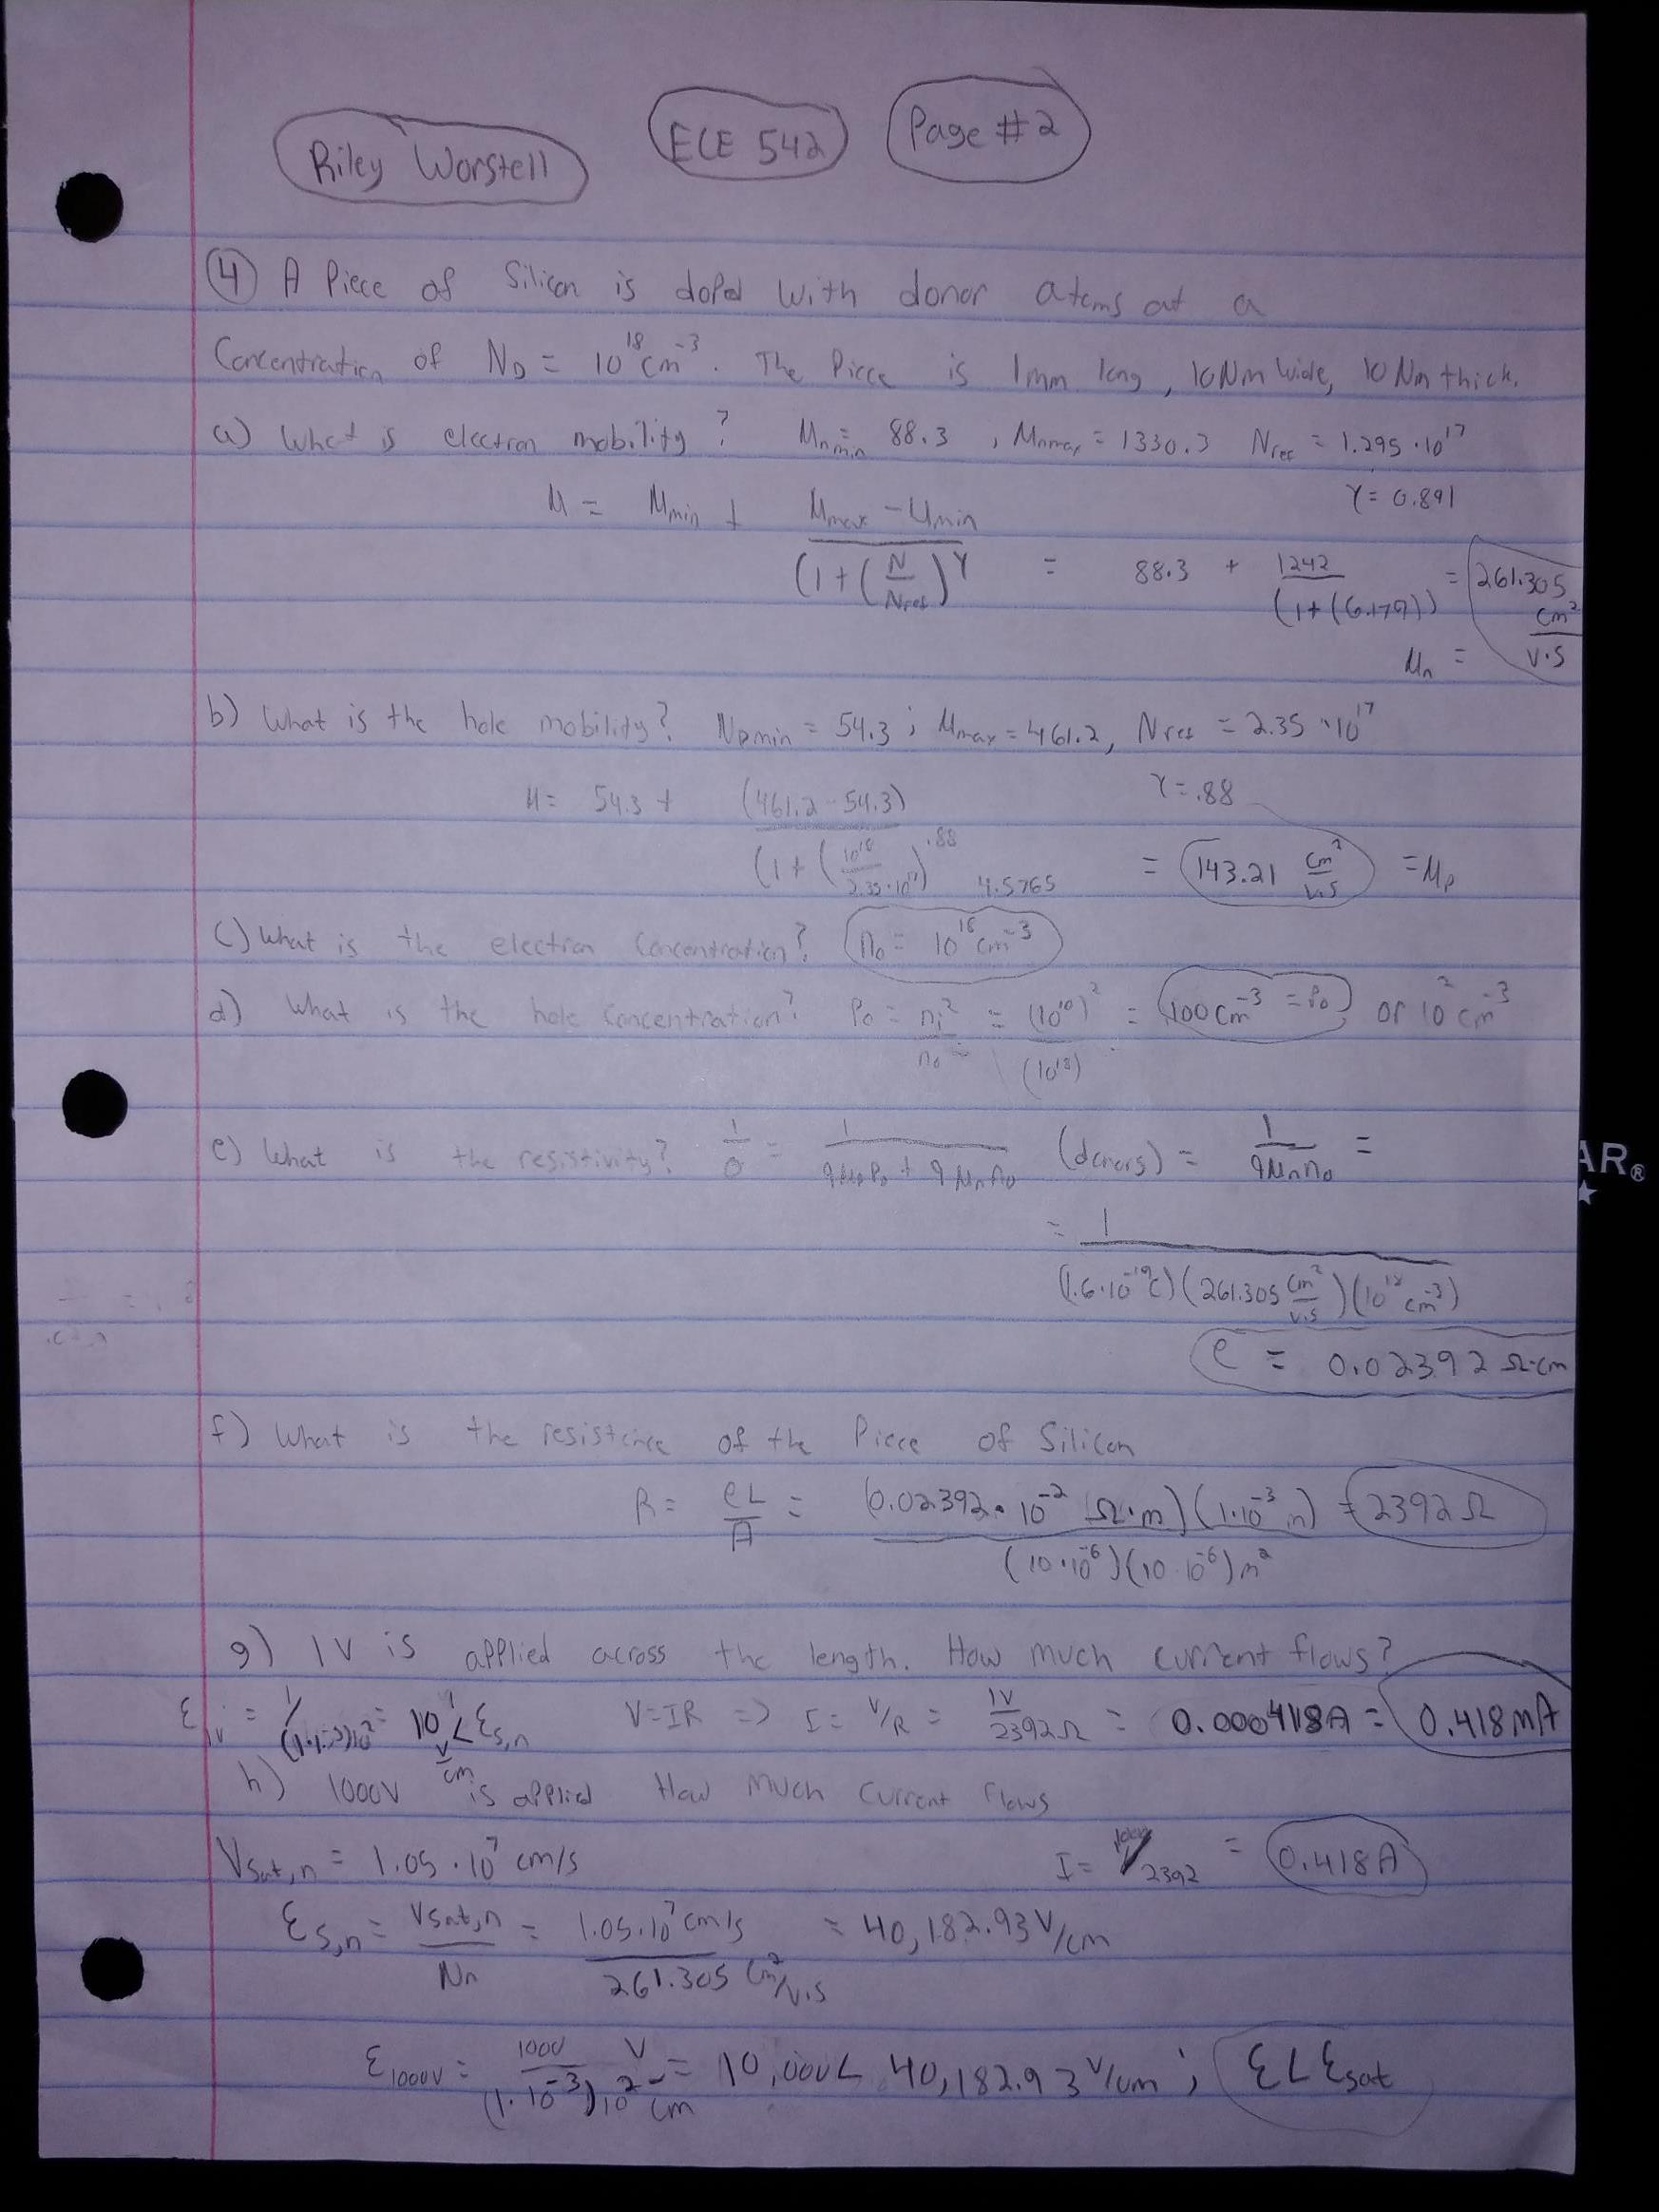 Riley Worstell
ECE 542
Page #2
④ A Piece of Silicon is doped with donor atoms at a
Concentration of N_D = 10^18 cm^-3. The Piece is 1mm long, 10Nm Wide, 10 Nm thick.
a) What is electron mobility? Mn min = 88.3, Mnmax = 1330.3 Nref = 1.295·10^17
γ = 0.891
M = Mmin + (Mmax - Mmin)/(1+(N/Nref)^γ = 88.3 + 1242/(1+(6.179)) = 261.305 cm²/V·S
Mn =
b) What is the hole mobility? Npmin = 54.3; Mmax = 461.2, Nref = 2.35·10^17
γ = .88
M = 54.3 + (461.2 - 54.3)/(1+(10^18/2.35·10^17)^.88 4.5765 = 143.21 cm²/V.S = Mp
c) What is the electron concentration? n₀ = 10^18 cm^-3
d) What is the hole concentration? P₀ = ni²/n₀ = (10^10)²/(10^18) = 100 cm^-3 = P₀ or 10² cm^-3
e) What is the resistivity? 1/σ = 1/(qMpP₀ + qMnn₀) (donors) = 1/(qMnn₀) =
= 1/((1.6·10^-19 C)(261.305 cm²/V.S)(10^18 cm^-3)
ρ = 0.02392 Ω·cm
f) What is the resistance of the Piece of Silicon
R = ρL/A = (0.02392·10^-2 Ω·m)(1·10^-3 m)/((10·10^-6)(10·10^-6)m² = 2392 Ω
g) 1V is applied across the length. How much current flows?
Ɛ1V = 1/(1·10^-3)10² = 10^1 V/cm < Ɛs,n V=IR => I = V/R = 1V/2392Ω = 0.000418A = 0.418mA
h) 1000V is applied How Much Current Flows
Vsat,n = 1.05·10^7 cm/s I = 1000/2392 = 0.418A
Ɛs,n = Vsat,n/Nn = 1.05·10^7 cm/s/261.305 cm²/V.S = 40,182.93 V/cm
Ɛ1000V = 1000/(1·10^-3)10² V/cm = 10,000 < 40,182.93 V/cm; Ɛ<Ɛsat
AR®